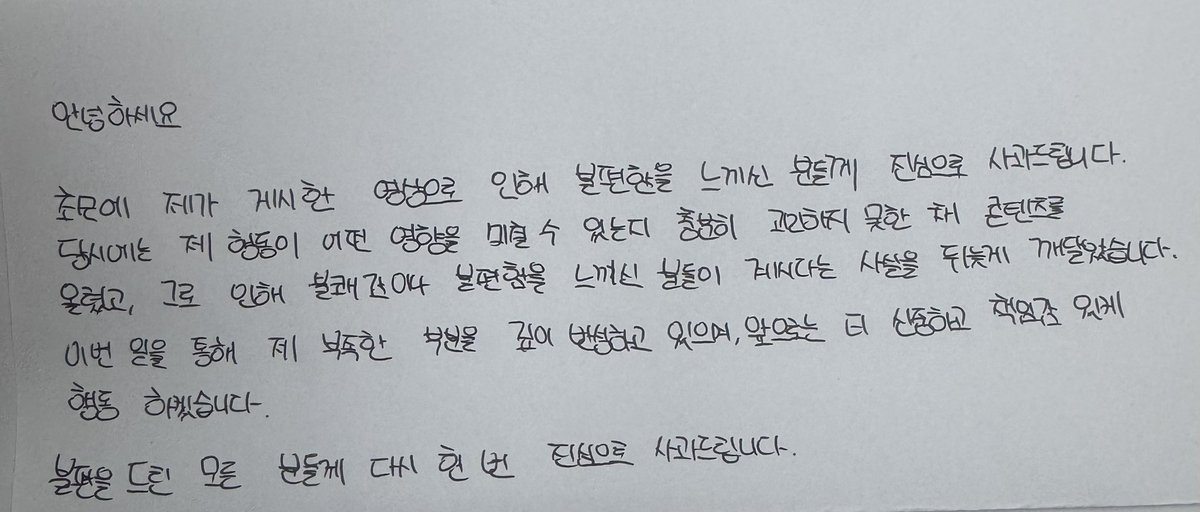 안녕하세요
초문에 제가 게시한 영상으로 인해 불편함을 느끼신 분들께 진심으로 사과드립니다.
당시에는 제 행동이 어떤 영향을 미칠 수 있는지 충분히 고민하지 못한 채 콘텐츠를
올렸고, 그로 인해 불쾌감이나 불편함을 느끼신 분들이 계시다는 사실을 뒤늦게 깨달았습니다.
이번 일을 통해 제 부족한 부분을 깊이 반성하고 있으며, 앞으로는 더 신중하고 책임감 있게
행동 하겠습니다.
불편을 드린 모든 분들께 다시 한 번 진심으로 사과드립니다.